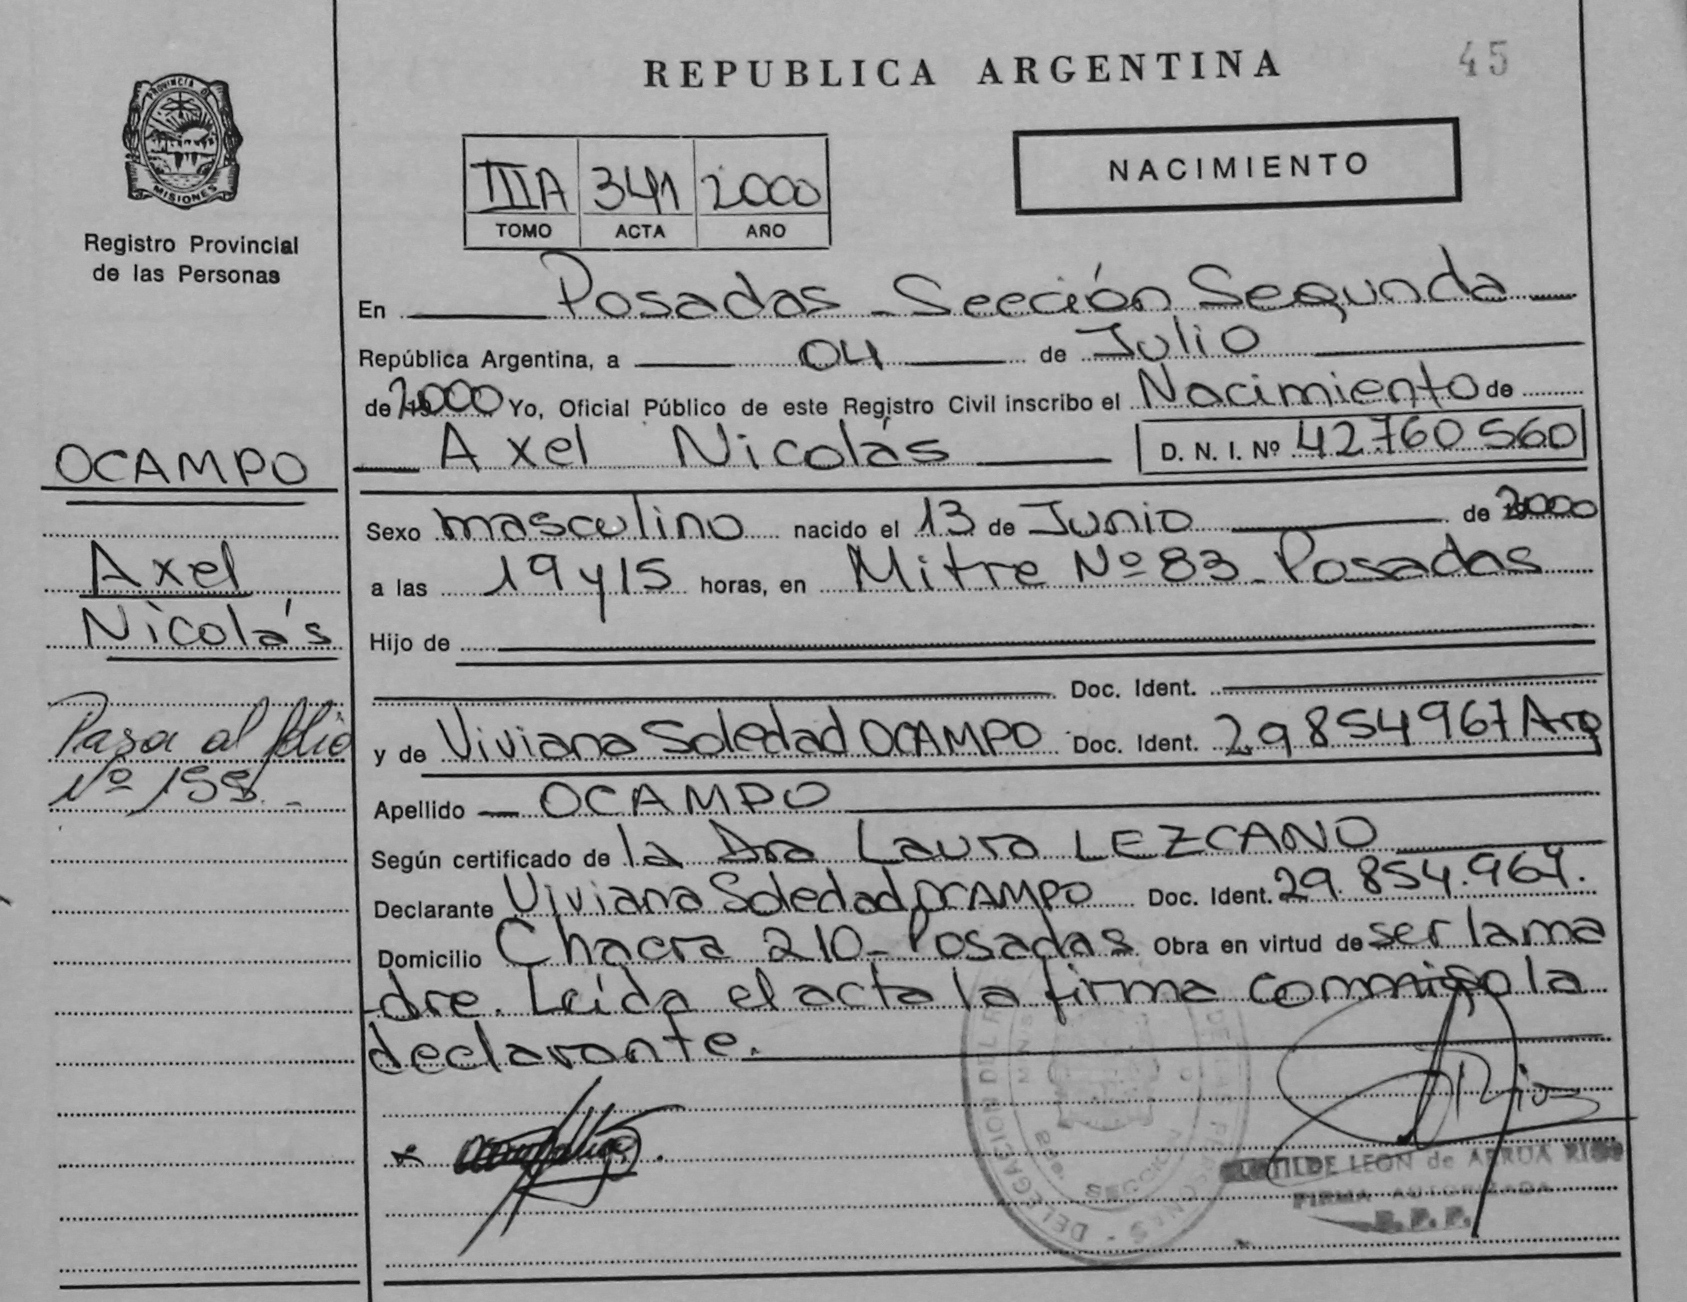 REPUBLICA ARGENTINA
45
PROVINCIA DE
MISIONES
Registro Provincial
de las Personas
IIIA 3411 2000
TOMO ACTA AÑO
NACIMIENTO
En Posadas - Sección Segunda
República Argentina, a 04 de Julio
de 2000 Yo, Oficial Público de este Registro Civil inscribo el Nacimiento de
Axel Nicolás D. N. I. Nº 42.760.560
OCAMPO
Axel
Nicolás
Sexo masculino nacido el 13 de Junio de 2000
a las 19 y 15 horas, en Mitre Nº 83 - Posadas
Hijo de
Doc. Ident.
Pasa al folio
Nº 158.-
y de Viviana Soledad OCAMPO Doc. Ident. 29854967 Arg
Apellido OCAMPO
Según certificado de la Dra Laura LEZCANO
Declarante Viviana Soledad OCAMPO Doc. Ident. 29.854.967.
Domicilio Chacra 210 - Posadas Obra en virtud de ser la ma
dre. Leída el acta la firma conmigo la
declarante.
LEON de ARRUA RIOS
FIRMA AUTORIZADA
R. P. P.